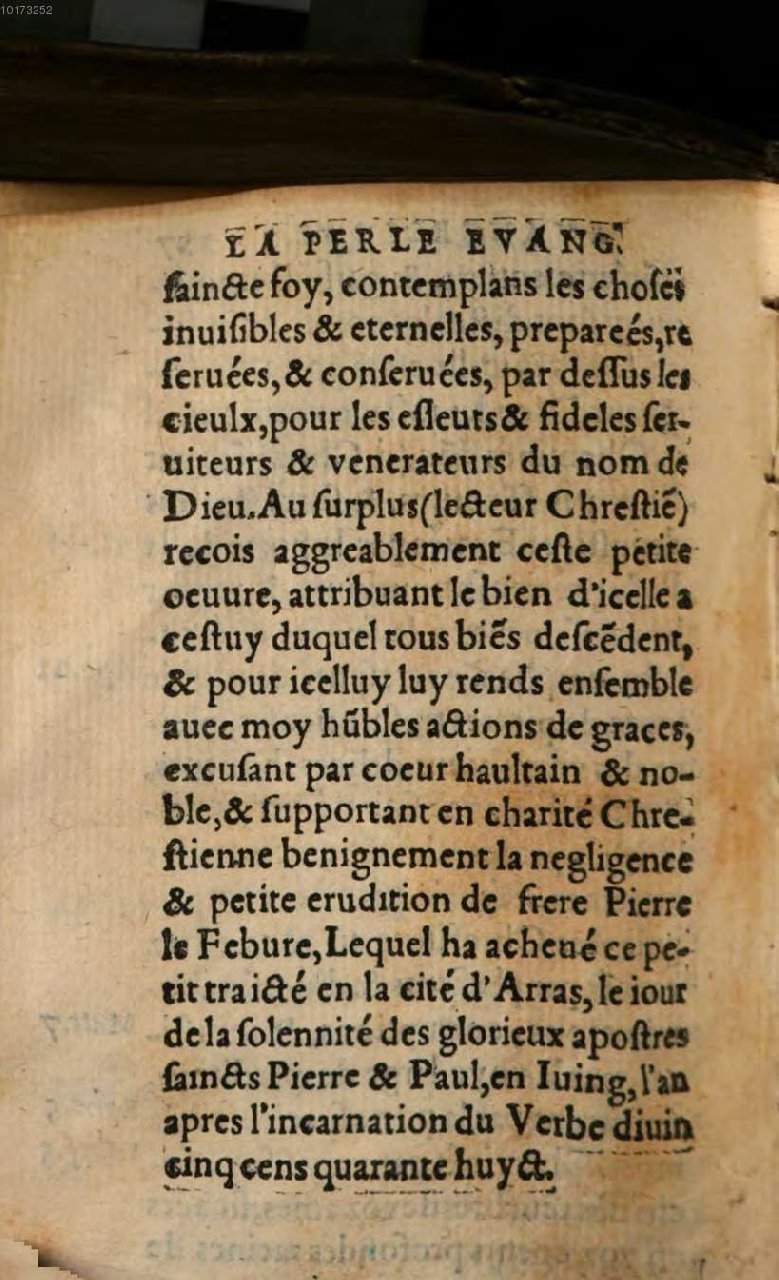 10173252
LA PERLE EVANG.
ſaincte foy, contemplans les choſes
inuiſibles & eternelles, prepareés, re
ſeruées, & conſeruées, par deſſus les
cieulx, pour les eſleuts & fideles ſer-
uiteurs & venerateurs du nom de
Dieu. Au ſurplus (lecteur Chreſtiẽ)
recois aggreablement ceſte petite
oeuure, attribuant le bien d'icelle a
ceſtuy duquel tous biẽs deſcẽdent,
& pour icelluy luy rends enſemble
auec moy hũbles actions de graces,
excuſant par coeur haultain & no-
ble, & ſupportant en charité Chre-
ſtienne benignement la negligence
& petite erudition de frere Pierre
le Febure, Lequel ha acheué ce pe-
tit traicté en la cité d'Arras, le iour
de la ſolennité des glorieux apoſtres
ſaincts Pierre & Paul, en Iuing, l'an
apres l'incarnation du Verbe diuin
cinq cens quarante huyct.